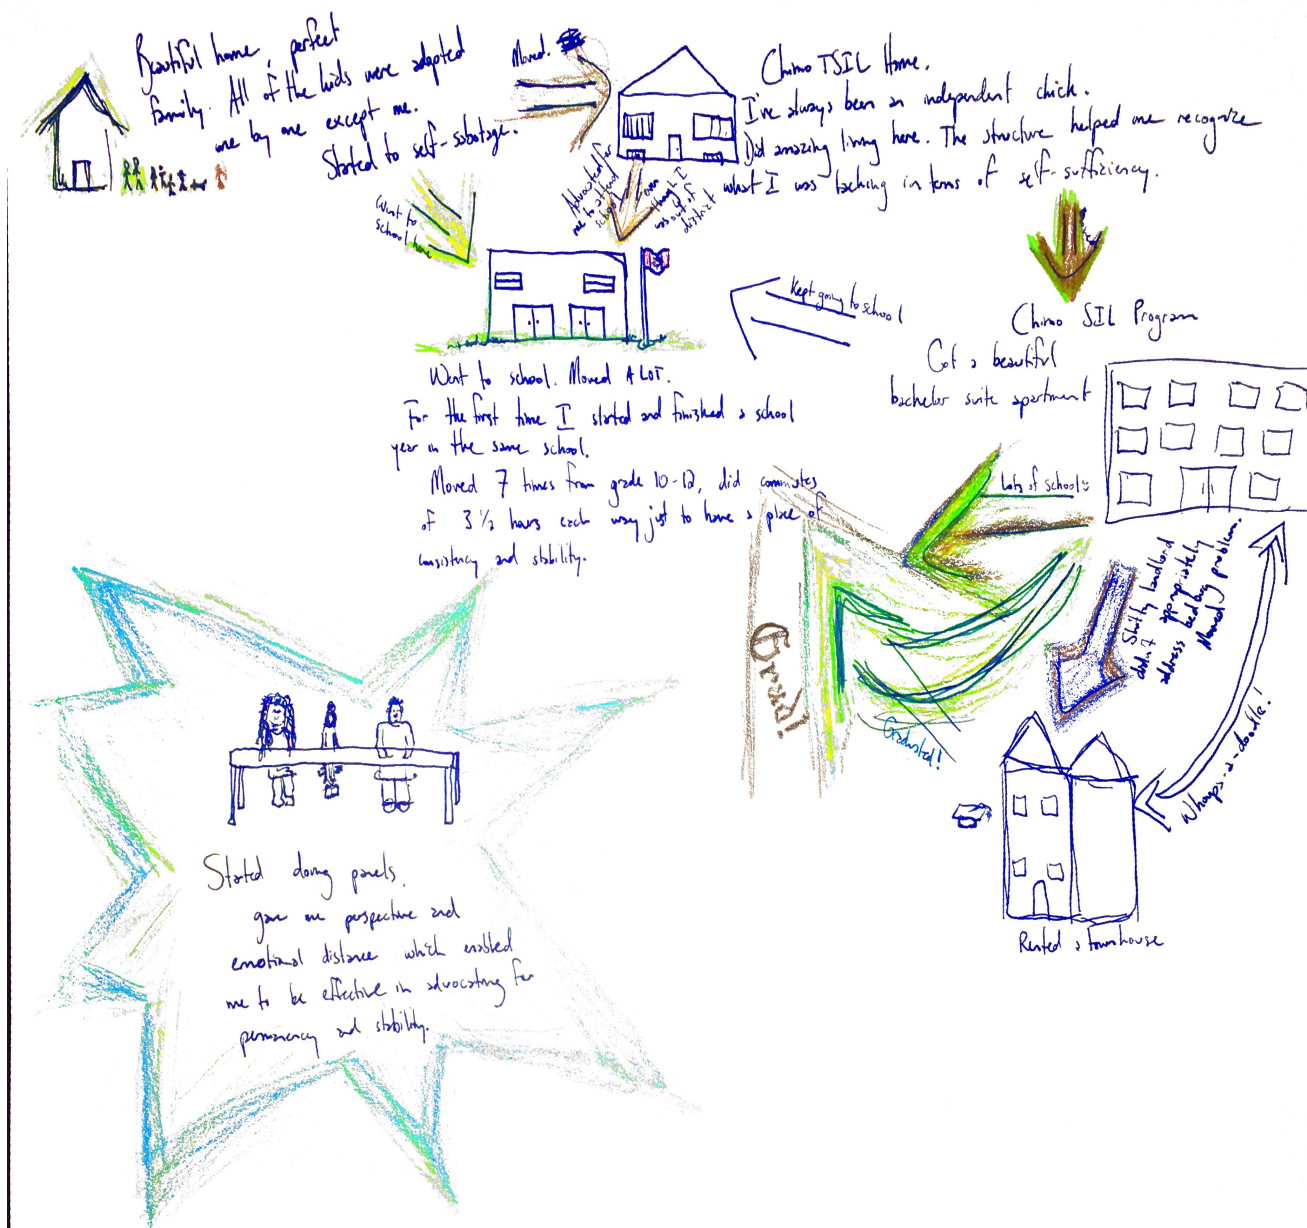 Beautiful home, perfect
family. All of the kids were adopted
one by one except me.
Started to self-sabotage.
Moved.
Chimo TSIL Home.
I've always been an independent chick.
Did amazing living here. The structure helped me recognize
what I was lacking in terms of self-sufficiency.
Went to
school here
Advocated for
me to attend
school even
though I
was out of
district
Kept going to school
Went to school. Moved A LOT.
For the first time I started and finished a school
year in the same school.
Moved 7 times from grade 10-12, did commutes
of 3 1/2 hours each way just to have a place of
consistency and stability.
Chimo SIL Program
Got a beautiful
bachelor suite apartment
Lots of school
Grad!
Graduated!
Shitty landlord
didn't appropriately
address bed bug problem.
Moved
Whoops-a-doodle!
Rented a townhouse
Started doing panels.
gave me perspective and
emotional distance which enabled
me to be effective in advocating for
permanency and stability.